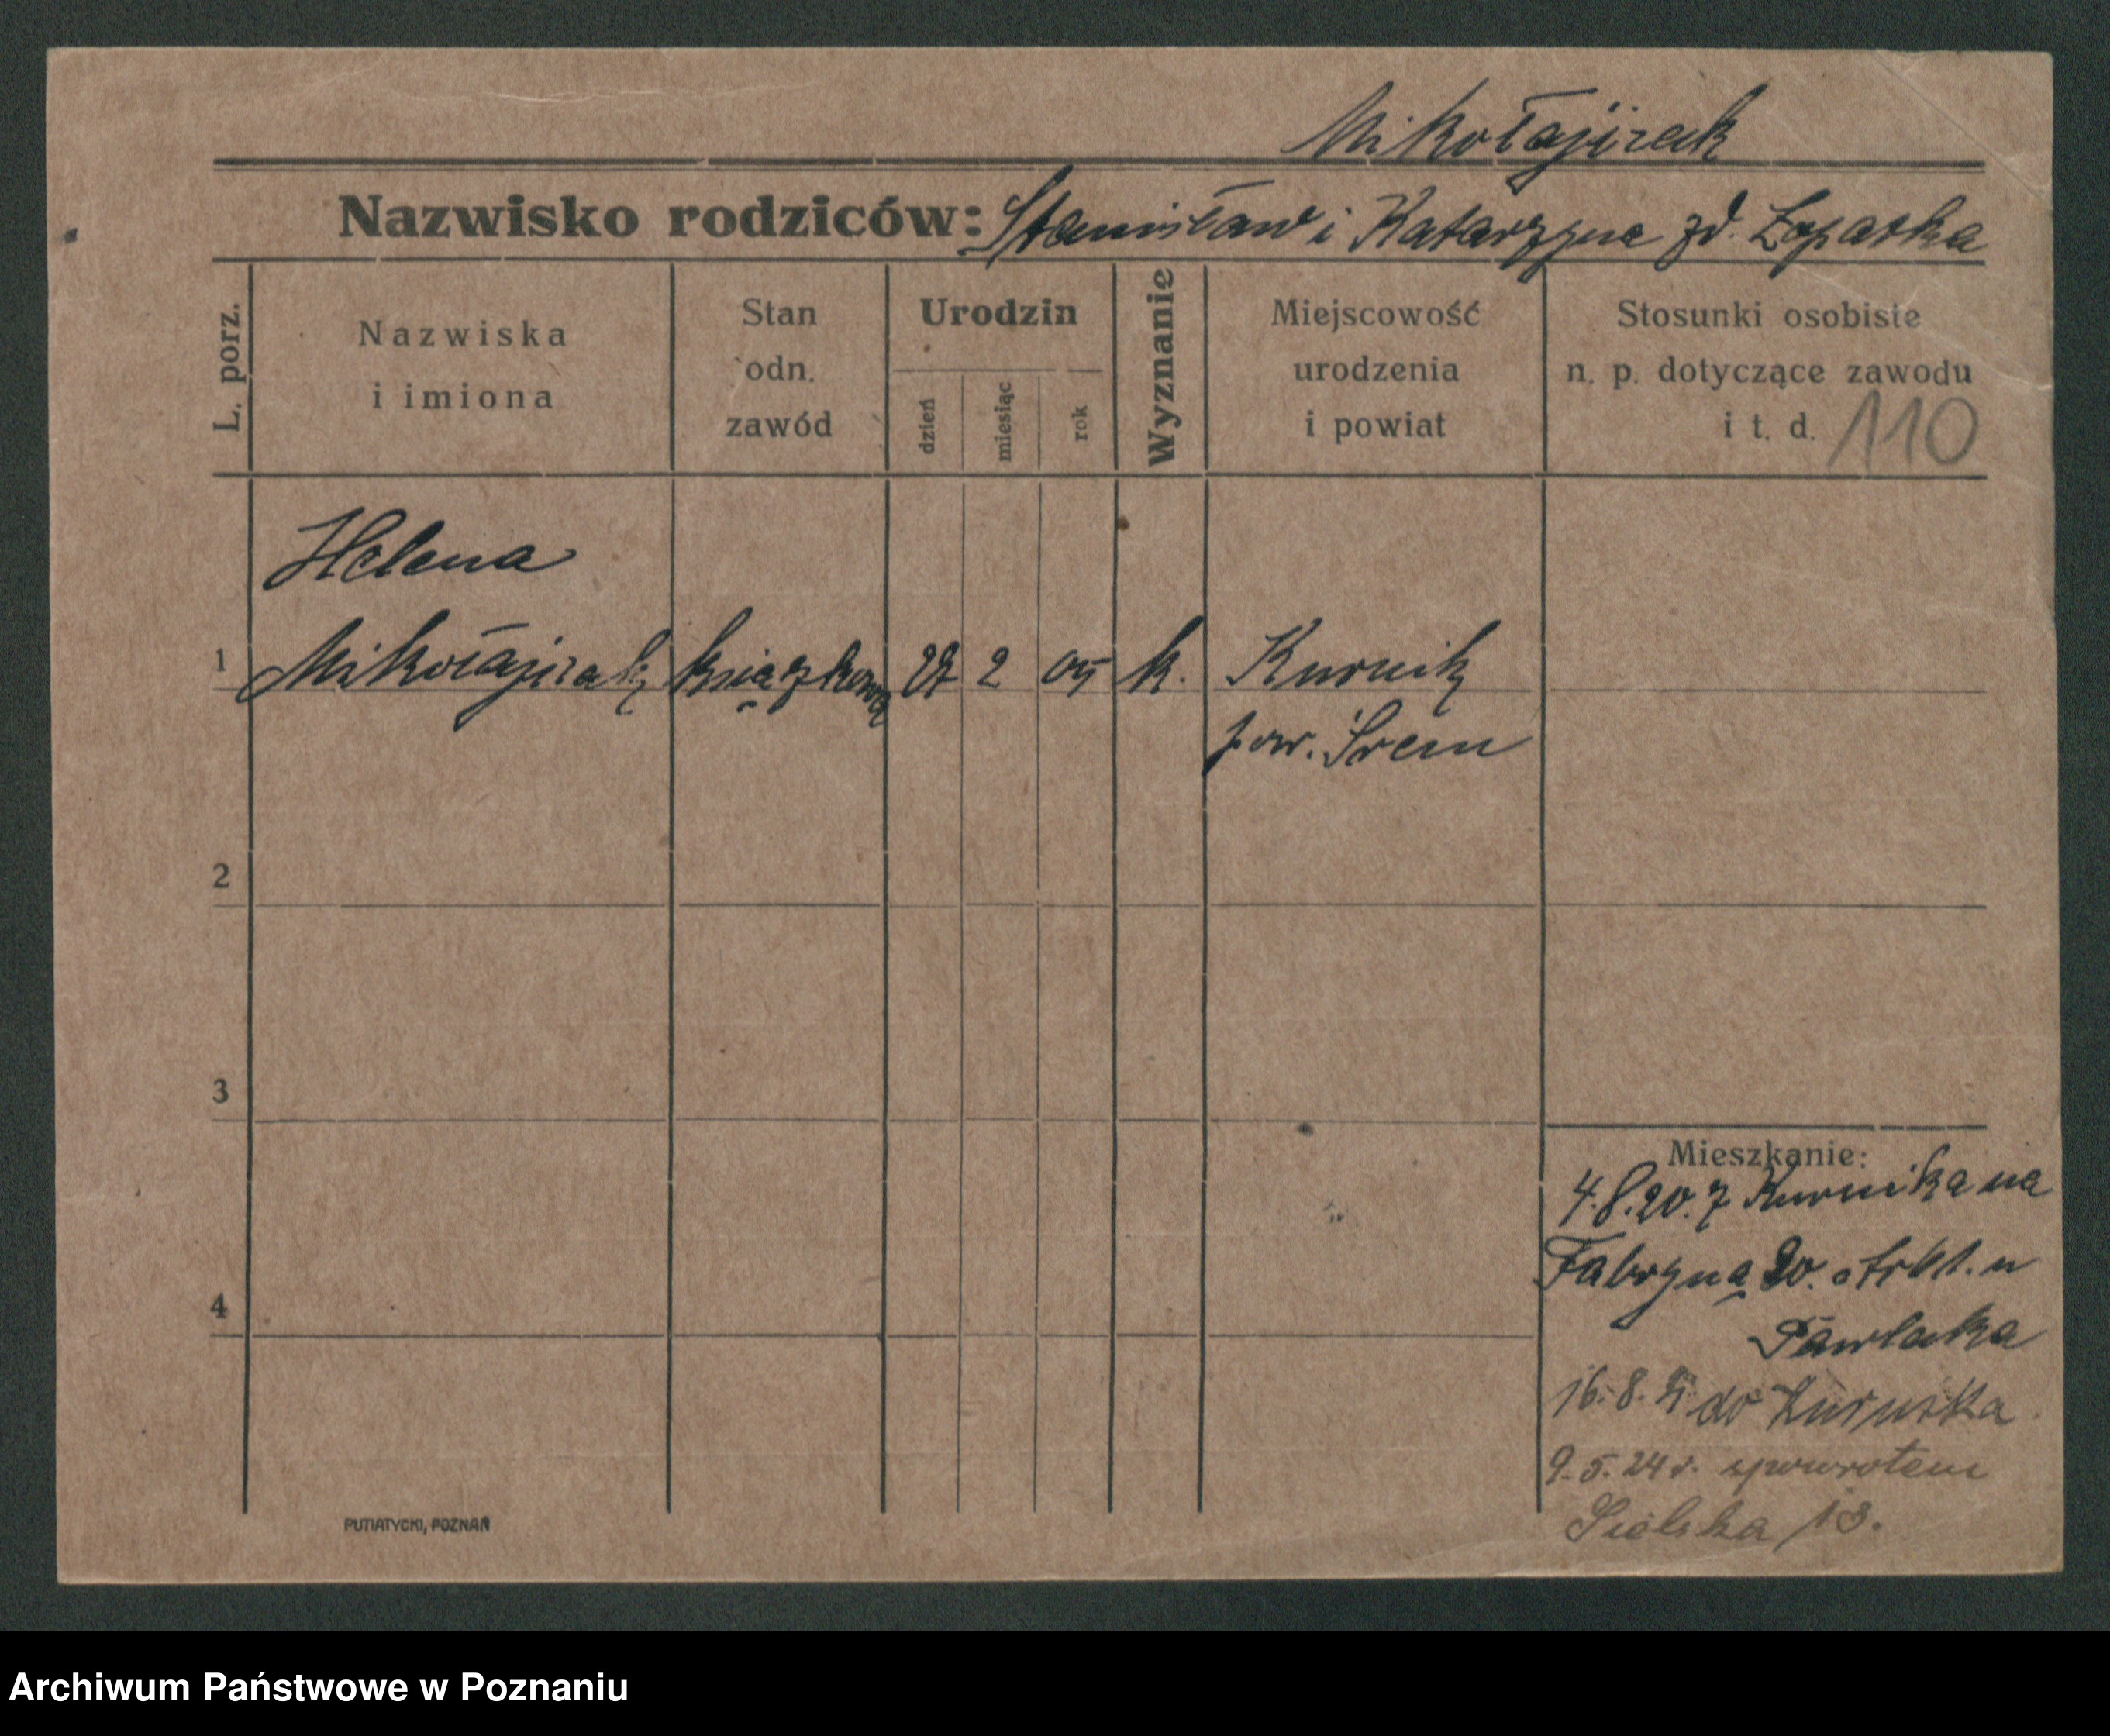 Mikołajczak
Nazwisko rodziców: Stanisław i Katarzyna zd. Łopatka
L. porz.
Nazwiska
i imiona
Stan
odn.
zawód
Urodzin
dzień
miesiąc
rok
Wyznanie
Miejscowość
urodzenia
i powiat
Stosunki osobiste
n. p. dotyczące zawodu
i t. d. 110
Helena
1 Mikołajczak książkowa 2 05 k. Kurnik
pow. Śrem
2
3
4
Mieszkanie:
4.8.20. z Kurnika na
Fabryczną 20. u
Pawlaka
16.8. do Kurnika
9.5.24 r. spowrotem
Sielska 13.
PUTIATYCKI, POZNAŃ
Archiwum Państwowe w Poznaniu